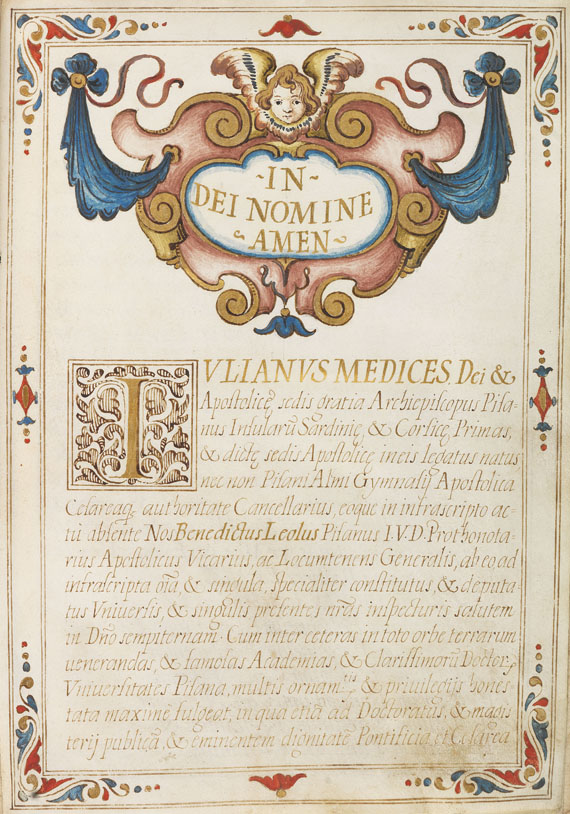 ~IN~
DEI NOMINE
~AMEN~
IVLIANVS MEDICES, Dei &
Apostolicę sedis gratia Archiepiscopus Pisa-
nus Insularū Sardinię, & Corsicę Primas,
& dictę sedis Apostolicę in eis legatus natus
nec non Pisani Almi Gymnasij Apostolica
Cesareaq; authoritate Cancellarius, eoque in infrascripto ac-
tū absente Nos Benedictus Leolus Pisanus I.V.D. Prothonota-
rius Apostolicus Vicarius, ac Locumtenens Generalis, ab eo ad
infrascripta oīa, & singula, specialiter constitutus, & deputa
tus Vniuersis, & singulis presentes nrās inspecturis salutem
in Dn̄o sempiternam. Cum inter ceteras in toto orbe terrarum
uenerandas, & famosas Academias, & Clarissimorū Doctorȝ
Vniuersitates Pisana, multis ornam.tis, & priuilegijs hones
tata maximè fulgeat, in qua etiā ad Doctoratus, & magis
terij publicā, & eminentem dignitatē Pontificia, et Cesarea